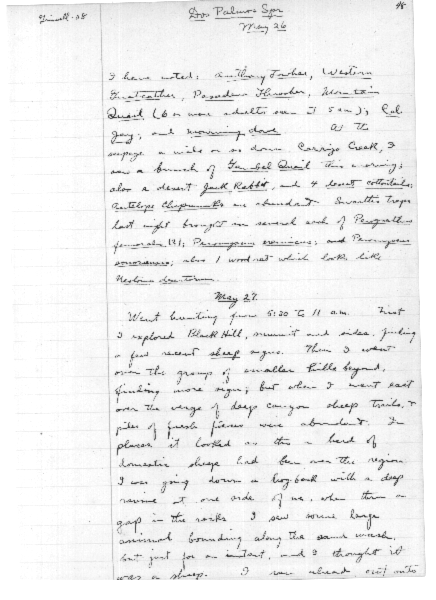 Grinnell - 08
48
Dos Palmos Spr
May 26
I have noted: Anthony Towhee, Western
Gnatcatcher, Pasadena Thrasher, Mountain
Quail (6 or more adults seen at 5 a.m.); Cal.
Jay; and mourning dove. At the
seepage a mile or so down Carrizo Creek, I
saw a bunch of Gambel Quail this morning;
also a desert Jack Rabbit, and 4 desert cottontails;
Antelope Chipmunks are abundant. Swarth's traps
last night brought in several each of Perognathus
femoralis (?); Peromyscus eremicus; and Peromyscus
sonoriensis; also 1 wood rat which looks like
Neotoma desertorum.
May 27.
Went hunting from 5:30 to 11 a.m. First
I explored Black Hill, summit and sides, finding
a few recent sheep signs. Then I went
over the group of smaller hills beyond,
finding more signs; but when I went east
over the verge of deep canyon sheep trails, &
piles of fresh pieces were abundant. In
places it looked as tho a herd of
domestic sheep had been over the region.
I was going down a hog back with a deep
ravine at one side of me, when thru a
gap in the rocks I saw some large
animal bounding along the sand wash,
but just for an instant, and I thought it
was a sheep. I ran ahead out onto